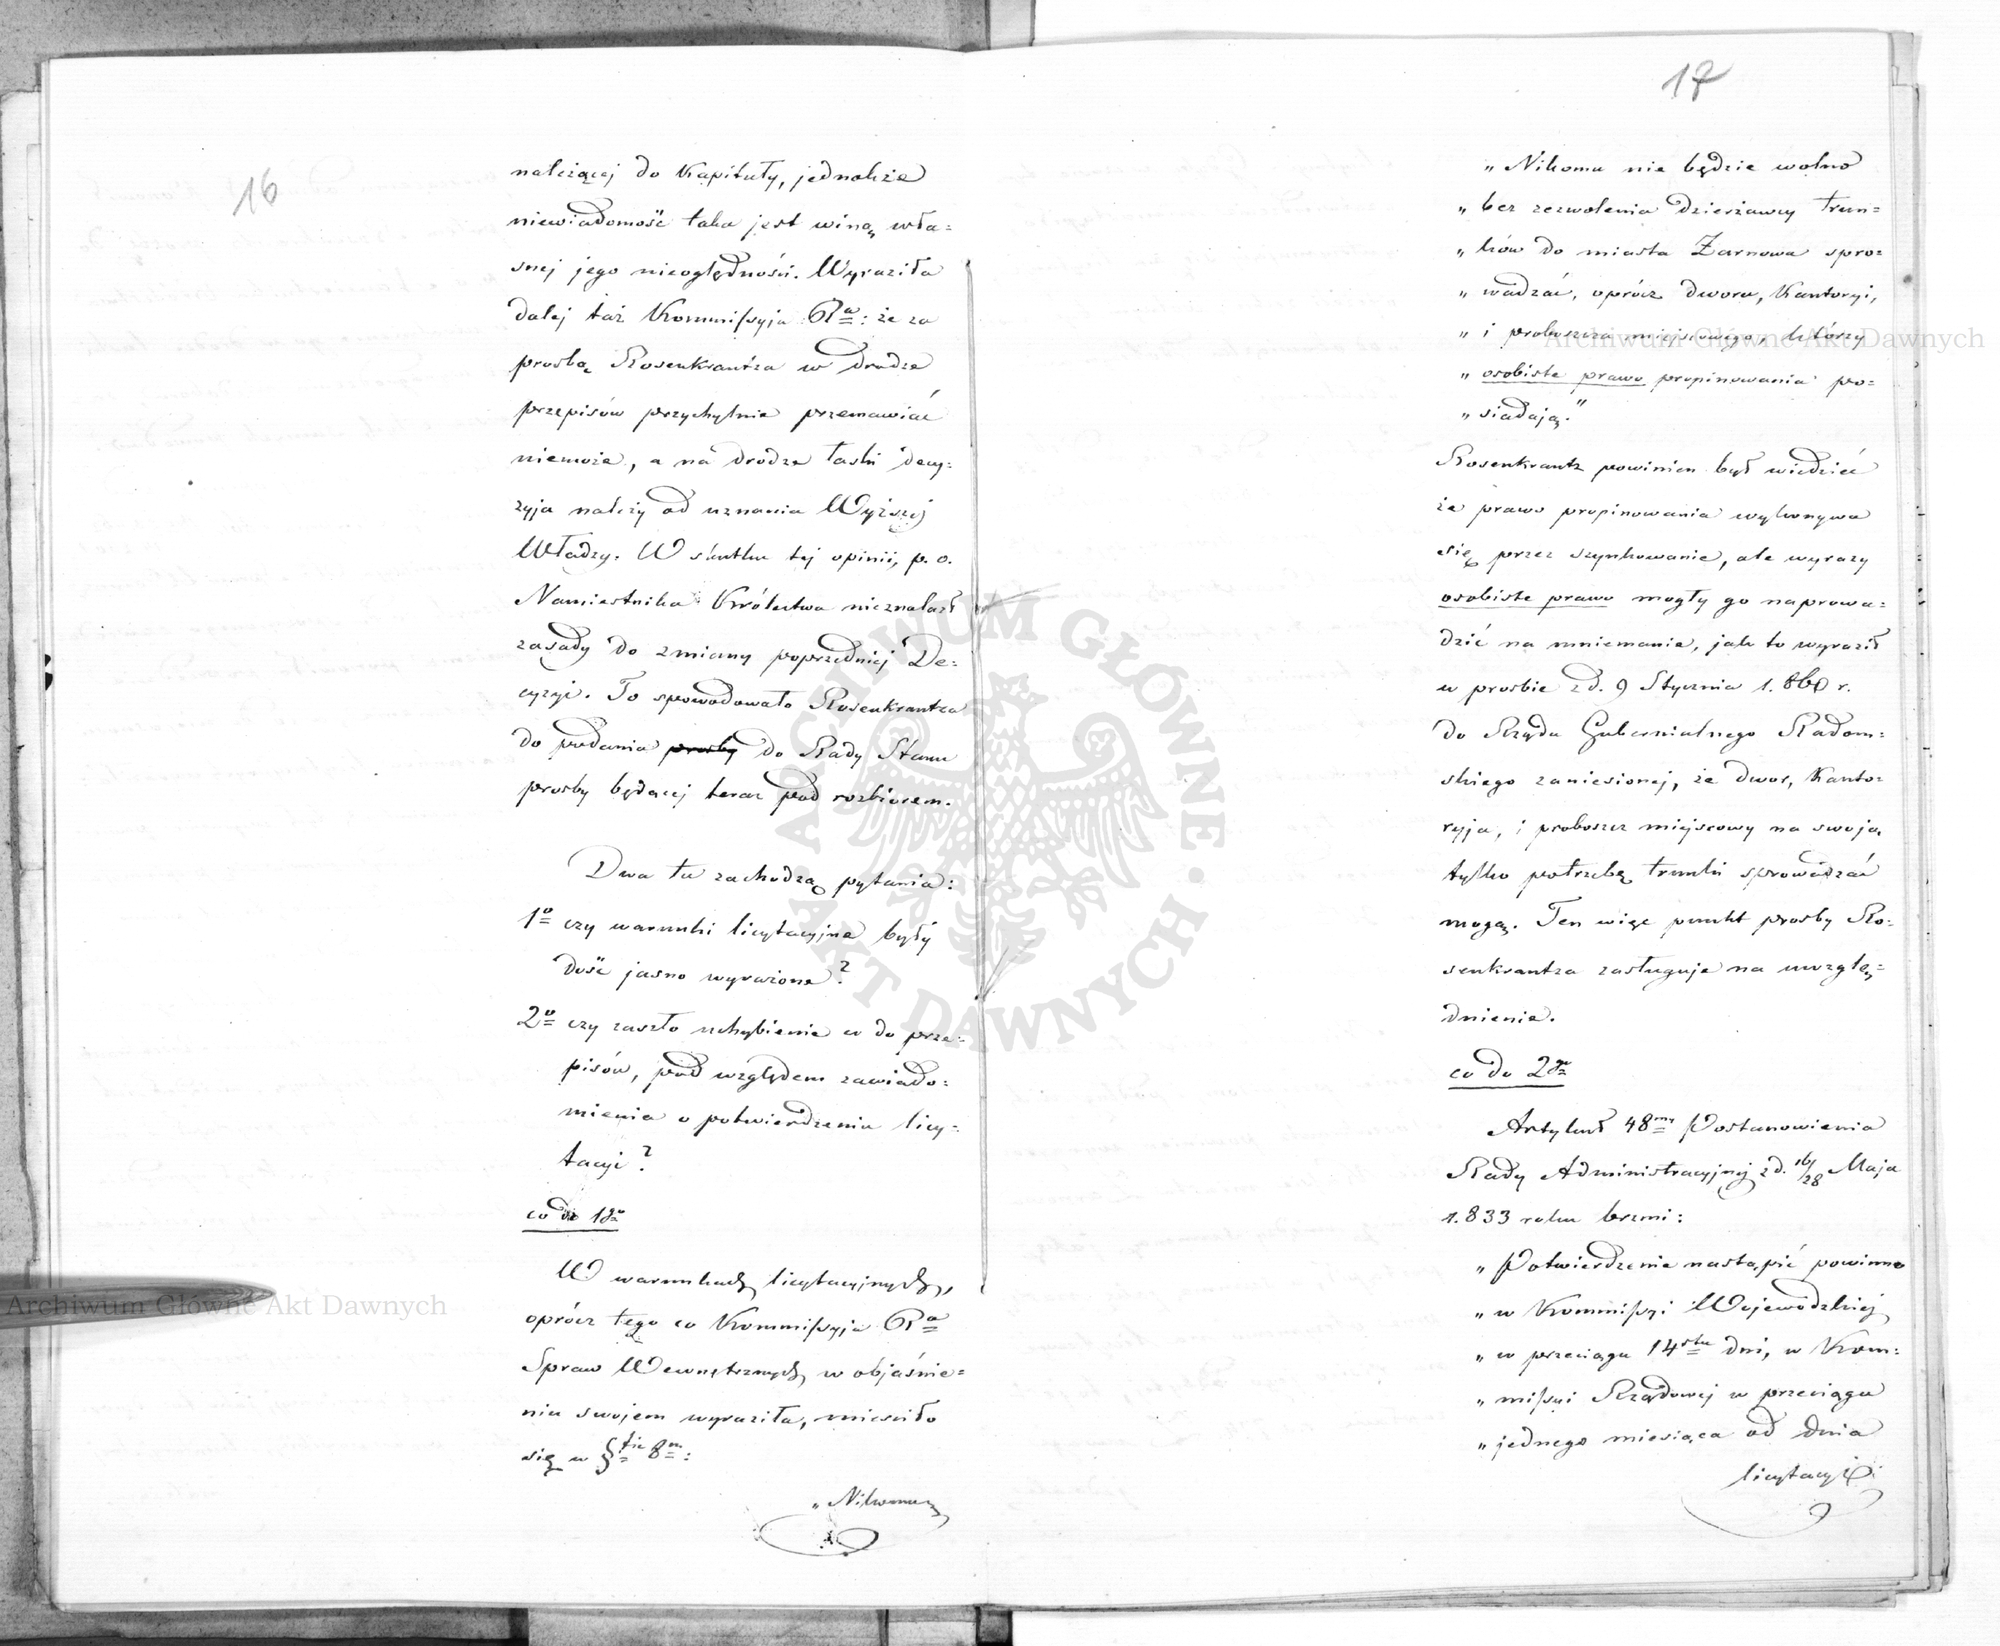 16
należącej do Kapituły, jednakże
niewiadomość taka jest winą wła=
snej jego nieoględności. Wyraziła
dalej taż Kommissyja Rª: że za
prośbą Rosenkrantza w drodze
przepisów przychylnie przemawiać
niemoże, a na drodze łaski decy=
zyja należy od uznania Wyższej
Władzy. W skutku tej opinii, p. o.
Namiestnika Królestwa nieznalazł
zasady do zmiany poprzedniej De=
cyzyi. To spowodowało Rosenkrantza
do podania prośby do Rady Stanu
prośby będącej teraz pod rozbiorem.
Dwa tu zachodzą pytania:
1º czy warunki licytacyjne były
dość jasno wyrażone?
2º czy zaszło uchybienie co do prze=
pisów, pod względem zawiado=
mienia o potwierdzeniu licy=
tacyi?
co do 1go
W warunkach licytacyjnych,
oprócz tego co Kommissyja Rª
Spraw Wewnętrznych w objaśnie=
niu swojem wyraziła, mieściło
się w §fie 8m:
„Nikomu
17
„Nikomu nie będzie wolno
„bez zezwolenia dzierżawcy trun=
„ków do miasta Żarnowa spro=
„wadzać, oprócz dworu, Kantoryi,
„i proboszcza miejscowego, którzy
„osobiste prawo propinowania po=
„siadają."
Rosenkrantz powinien był wiedzieć
że prawo propinowania wykonywa
się przez szynkowanie, ale wyrazy
osobiste prawo mogły go naprowa=
dzić na mniemanie, jak to wyraził
w prośbie z d. 9 Stycznia 1.860 r.
do Rządu Gubernialnego Radom=
skiego zaniesionej, że dwór, Kanto=
ryja, i proboszcz miejscowy na swoją
tylko potrzebę trunki sprowadzać
mogą. Ten więc punkt prośby Ro=
senkrantza zasługuje na uwzglę=
dnienie.
co do 2go
Artykuł 48my Postanowienia
Rady Administracyjnej z d. 16/28 Maja
1.833 roku brzmi:
„Potwierdzenie nastąpić powinno
„w Kommissyi Wojewódzkiej
„w przeciągu 14stu dni, w Kom=
„missyi Rządowej w przeciągu
„jednego miesiąca od dnia
licytacyi
Archiwum Główne Akt Dawnych
Archiwum Główne Akt Dawnych
ARCHIWUM GŁÓWNE · AKT DAWNYCH ·